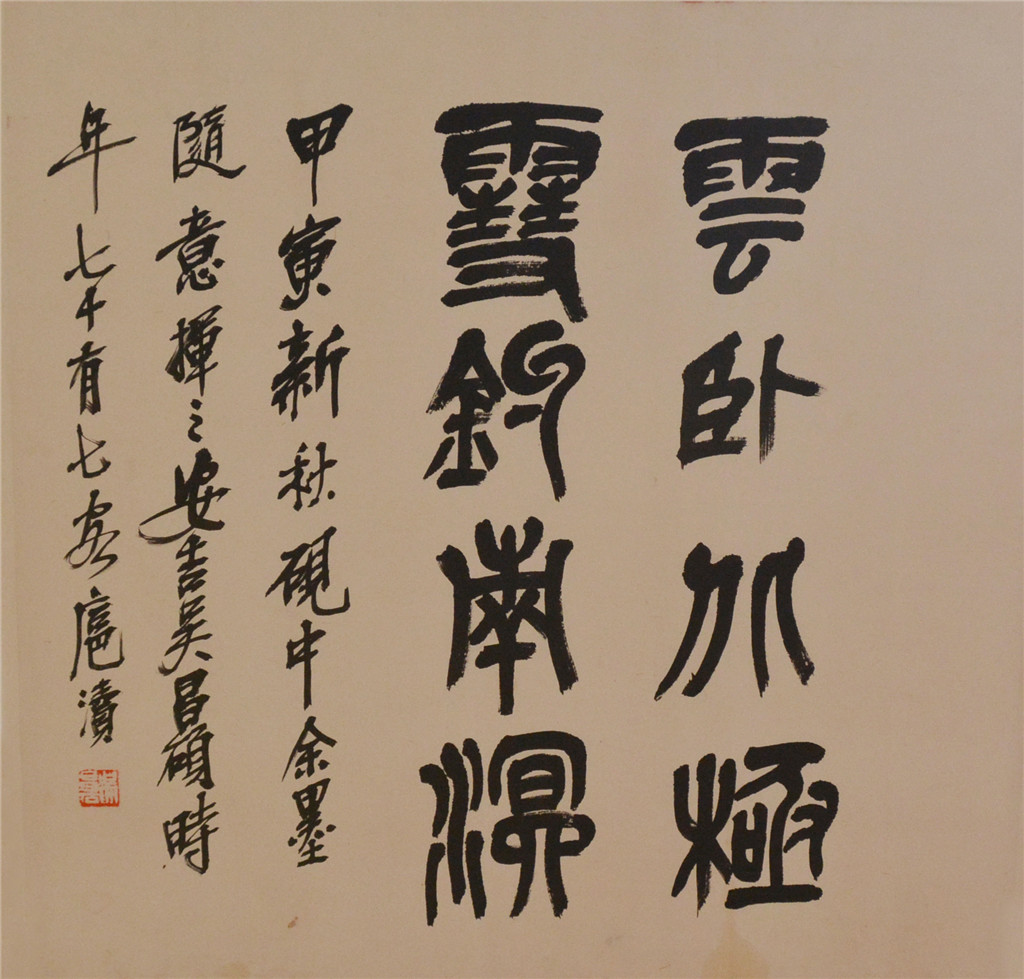 雲卧北極
雪釣南溟
甲寅新秋硯中余墨
隨意揮之安吉吳昌碩時
年七十有七客扈瀆